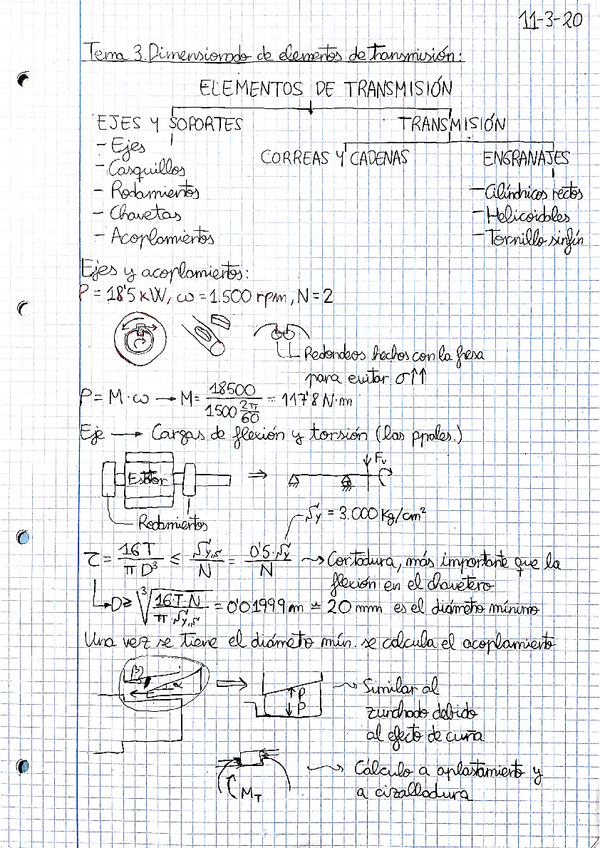 11-3-20
Tema 3. Dimensionado de elementos de transmisión:
ELEMENTOS DE TRANSMISIÓN
EJES Y SOPORTES
TRANSMISIÓN
- Ejes
- Casquillos
- Rodamientos
- Chavetas
- Acoplamientos
CORREAS Y CADENAS
ENGRANAJES
- Cilíndricos rectos
- Helicoidales
- Tornillo sinfín
Ejes y acoplamientos:
P = 18'5 kW, ω = 1.500 rpm, N = 2
Redondeos hechos con la fresa
para evitar σ↑↑
P = M·ω → M = 18500 / (1500 2π/60) = 117'8 N·m
Eje → Cargas de flexión y torsión (las ppales.)
Estator
Fv
Rodamientos
Sy = 3.000 Kg/cm²
τ = 16T / πD³ ≤ Sy,s / N = 0'5·Sy / N → Cortadura, más importante que la
flexión en el chavetero
D ≥ ∛(16T·N / π·Sy,s) = 0'01999 m ≐ 20 mm es el diámetro mínimo
Una vez se tiene el diámetro mín. se calcula el acoplamiento
β
α
P
P
Similar al
zunchado debido
al efecto de cuña
MT
Cálculo a aplastamiento y
a cizalladura